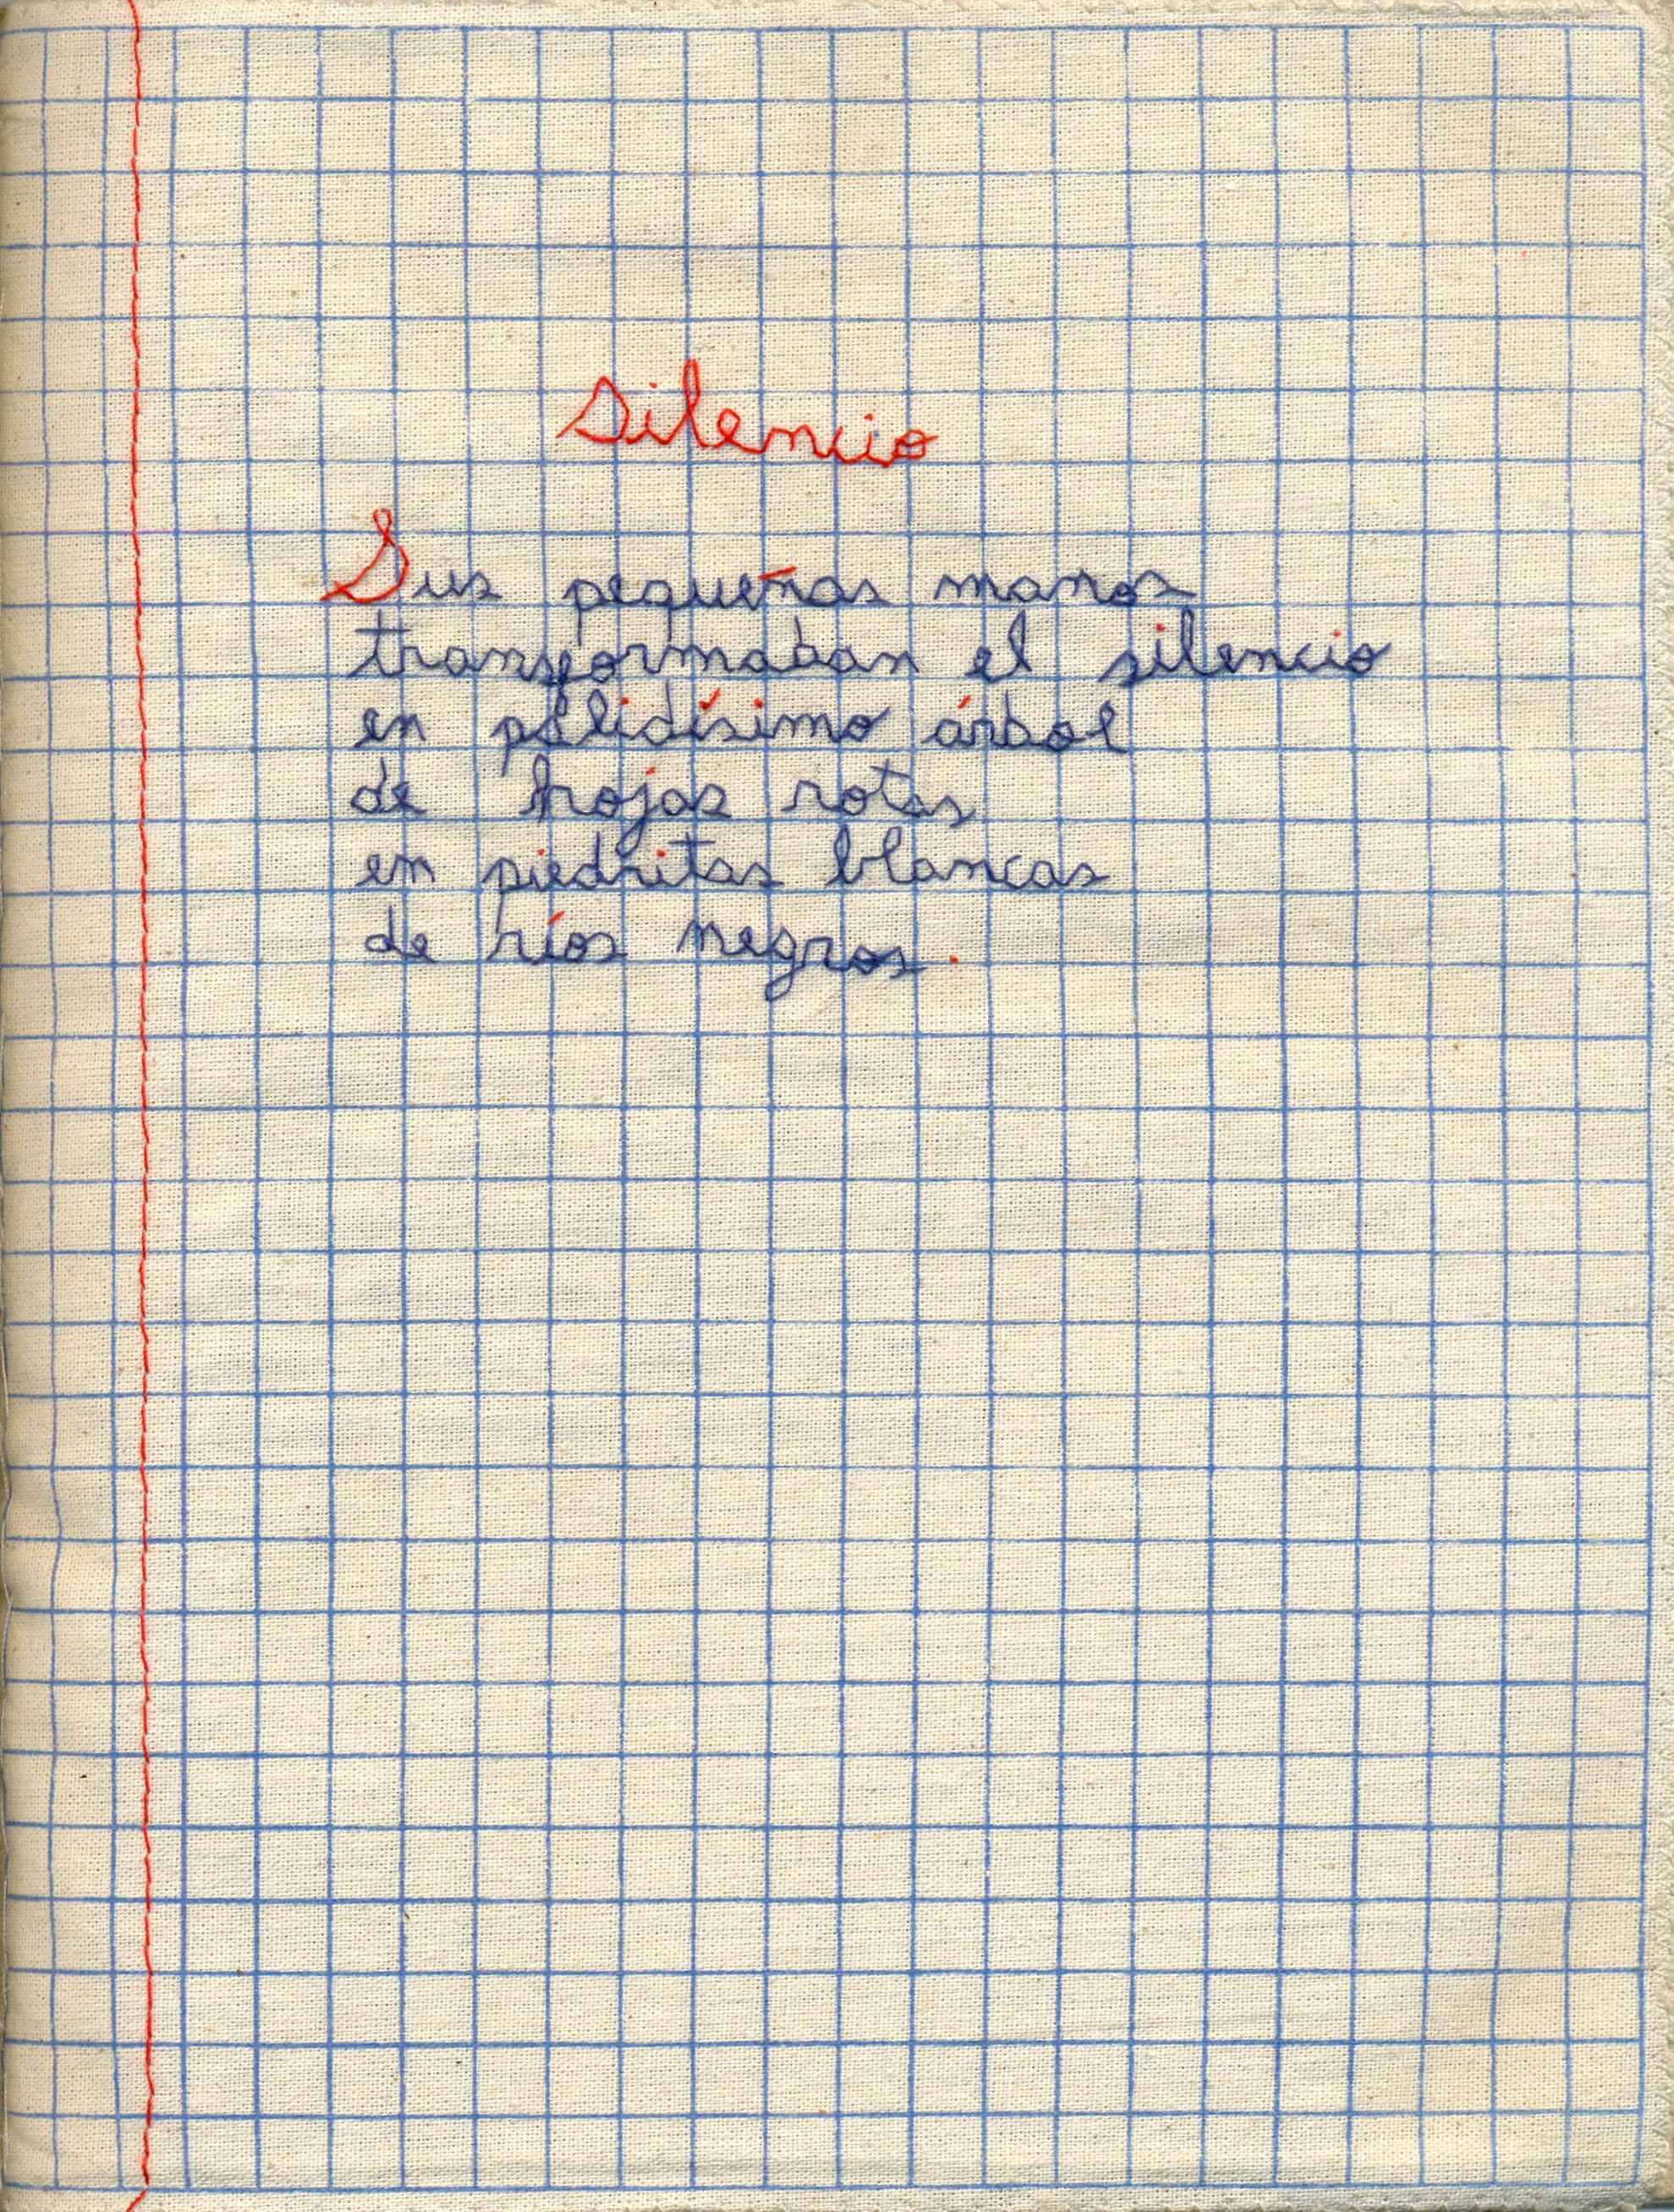 Silencio
Sus pequeñas manos
transformaban el silencio
en palidísimo árbol
de hojas rotas
en piedritas blancas
de ríos negros.